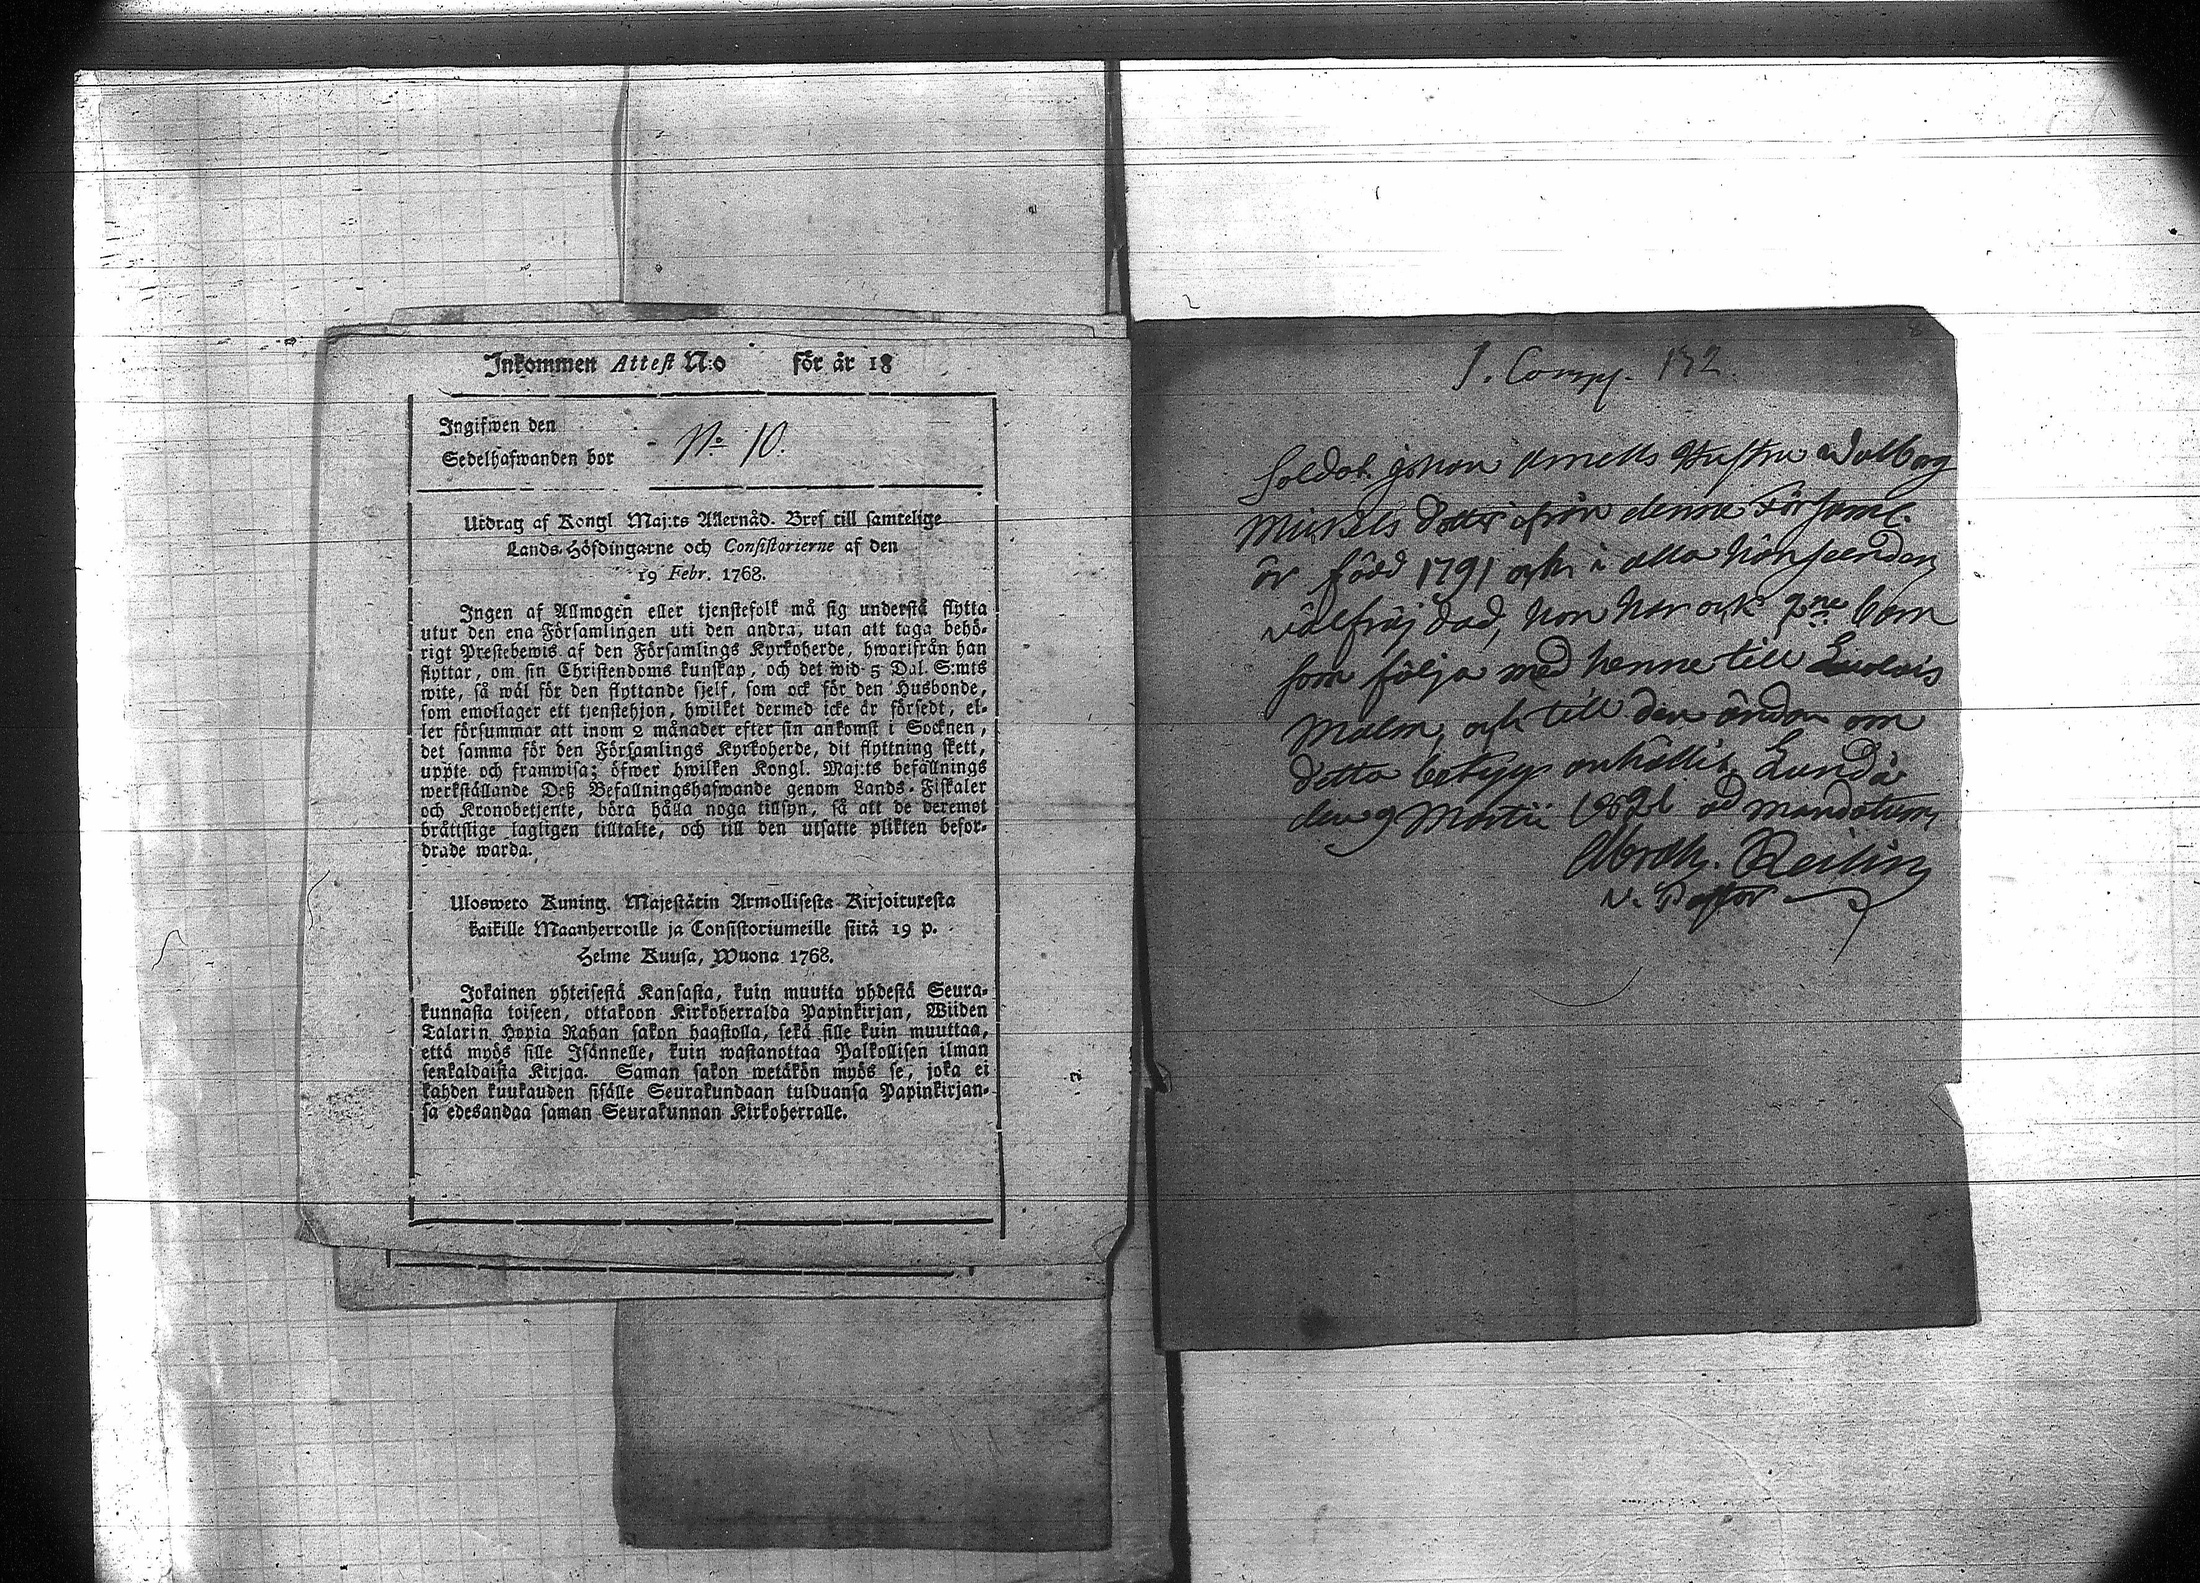 Inkommen Attest N:o för år 18
Ingifwen den
Sedelhafwanden bor
No 10.
Utdrag af Kongl Maj:ts Allernåd. Bref till samtelige
Lands-Höfdingarne och Consistorierne af den
19 Febr. 1768.
Ingen af Allmogen eller tjenstefolk må sig understå flytta
utur den ena Församlingen uti den andra, utan att taga behö-
rigt Prestebewis af den Församlings Kyrkoherde, hwarifrån han
flyttar, om sin Christendoms kunskap, och det wid 5 Dal. S:mts
wite, så wäl för den flyttande sjelf, som ock för den Husbonde,
som emottager ett tjenstehjon, hwilket dermed icke är försedt, el-
ler försummar att inom 2 månader efter sin ankomst i Socknen,
det samma för den Församlings Kyrkoherde, dit flyttning skett,
uppte och framwisa; öfwer hwilken Kongl. Maj:ts befallnings
werkställande Deß Befallningshafwande genom Lands-Fiskaler
och Kronobetjente, böra hålla noga tillsyn, så att de deremot
bråttslige lagligen tilltalte, och till den utsatte plikten befor-
drade warda.
Ulosweto Kuning. Majestätin Armollisesta Kirjoituxesta
kaikille Maanherroille ja Consistoriumeille siitä 19 p.
Helme Kuusa, Wuona 1768.
Jokainen yhteisestä Kansasta, kuin muutta yhdestä Seura-
kunnasta toiseen, ottakoon Kirkoherralda Papinkirjan, Wiiden
Talarin Hopia Rahan sakon haastolla, sekä sille kuin muuttaa,
että myös sille Isännelle, kuin wastanottaa Palkollisen ilman
senkaldaista Kirjaa. Saman sakon wetäkön myös se, joka ei
kahden kuukauden sisälle Seurakundaan tulduansa Papinkirjan-
sa edesandaa saman Seurakunnan Kirkoherralle.
8
1. Comp. 132
Soldat. Johan Hustru Walborg
Mickels dotter ifrån denna Församl.
är född 1791 och i alla hänseenden
välfräjdad, hon har ock 2ne barn
som följa med henne till
Malm, och till den ändan om
detta betyg anhållit. Lundå
den 9 Martii ad mandatum
Abrah. Reilin
v. Pastor